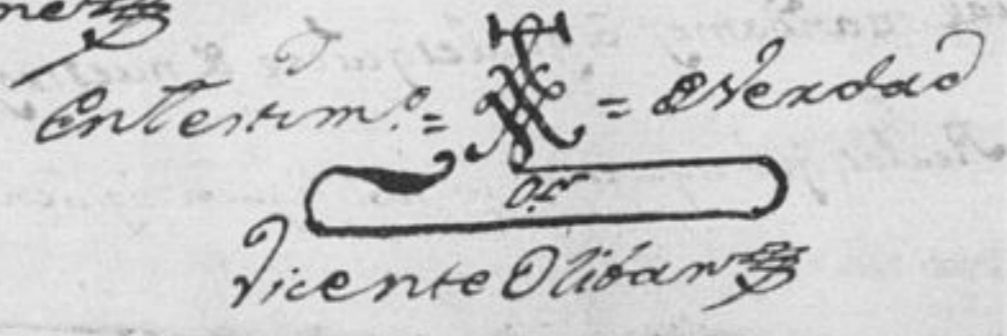 En Testim.º = = de Verdad
Vicente Oliban